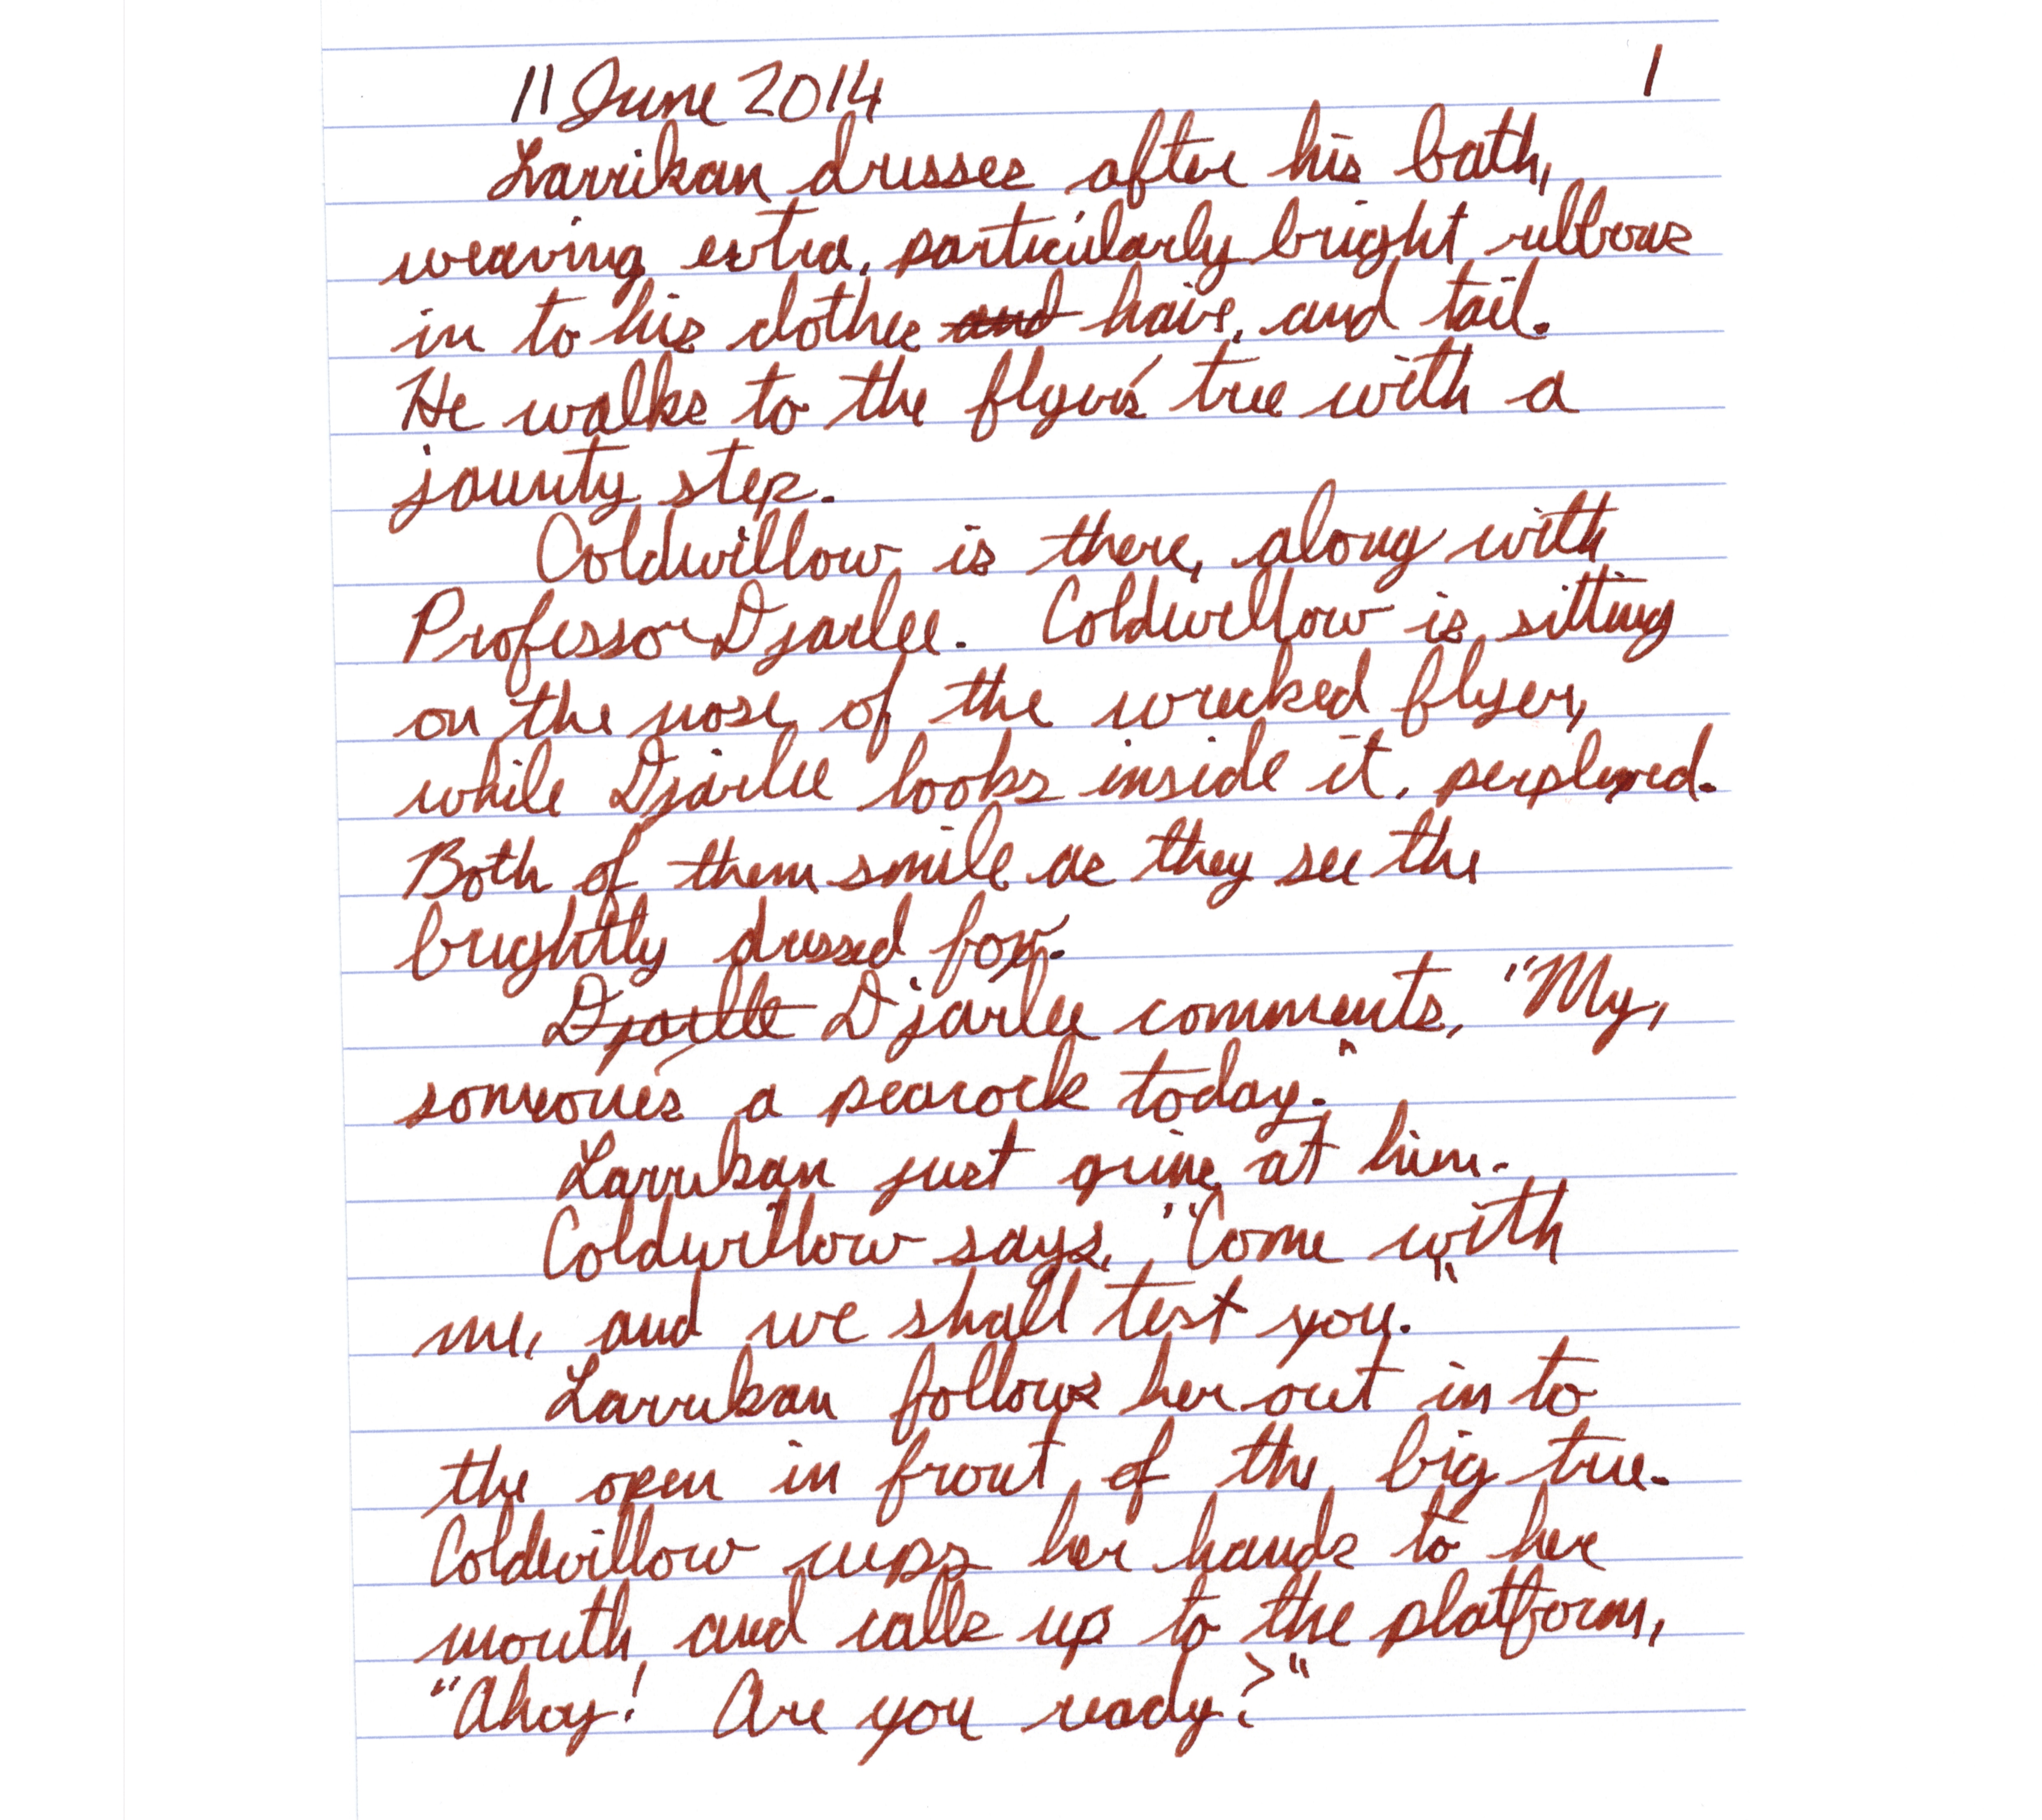 11 June 2014 1
Larrikan dresses after his bath,
weaving extra, particularly bright ribbons
in to his clothes and hair, and tail.
He walks to the flyer's tree with a
jaunty step.
Coldwillow is there, along with
Professor Djarlee. Coldwillow is sitting
on the nose of the wrecked flyer,
while Djarlee looks inside it, perplexed.
Both of them smile as they see the
brightly dressed fox.
Djarlee Djarlee comments, "My,
someone's a peacock today."
Larrikan just grins at him.
Coldwillow says, "Come with
me, and we shall test you."
Larrikan follows her out in to
the open in front of the big tree.
Coldwillow cups her hands to her
mouth and calls up to the platform,
"Ahoy! Are you ready?"